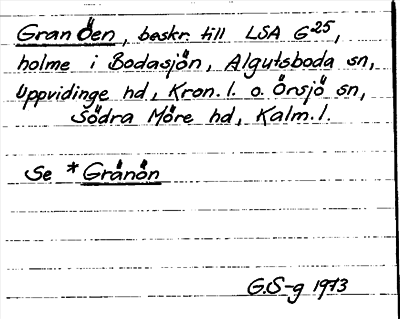 Gran Öen, beskr. till LSA G25,
holme i Bodasjön, Algutsboda sn,
Uppvidinge hd, Kron. l. o. Örsjö sn,
Södra Möre hd, Kalm. l.
Se *Granön
G.S-g 1973